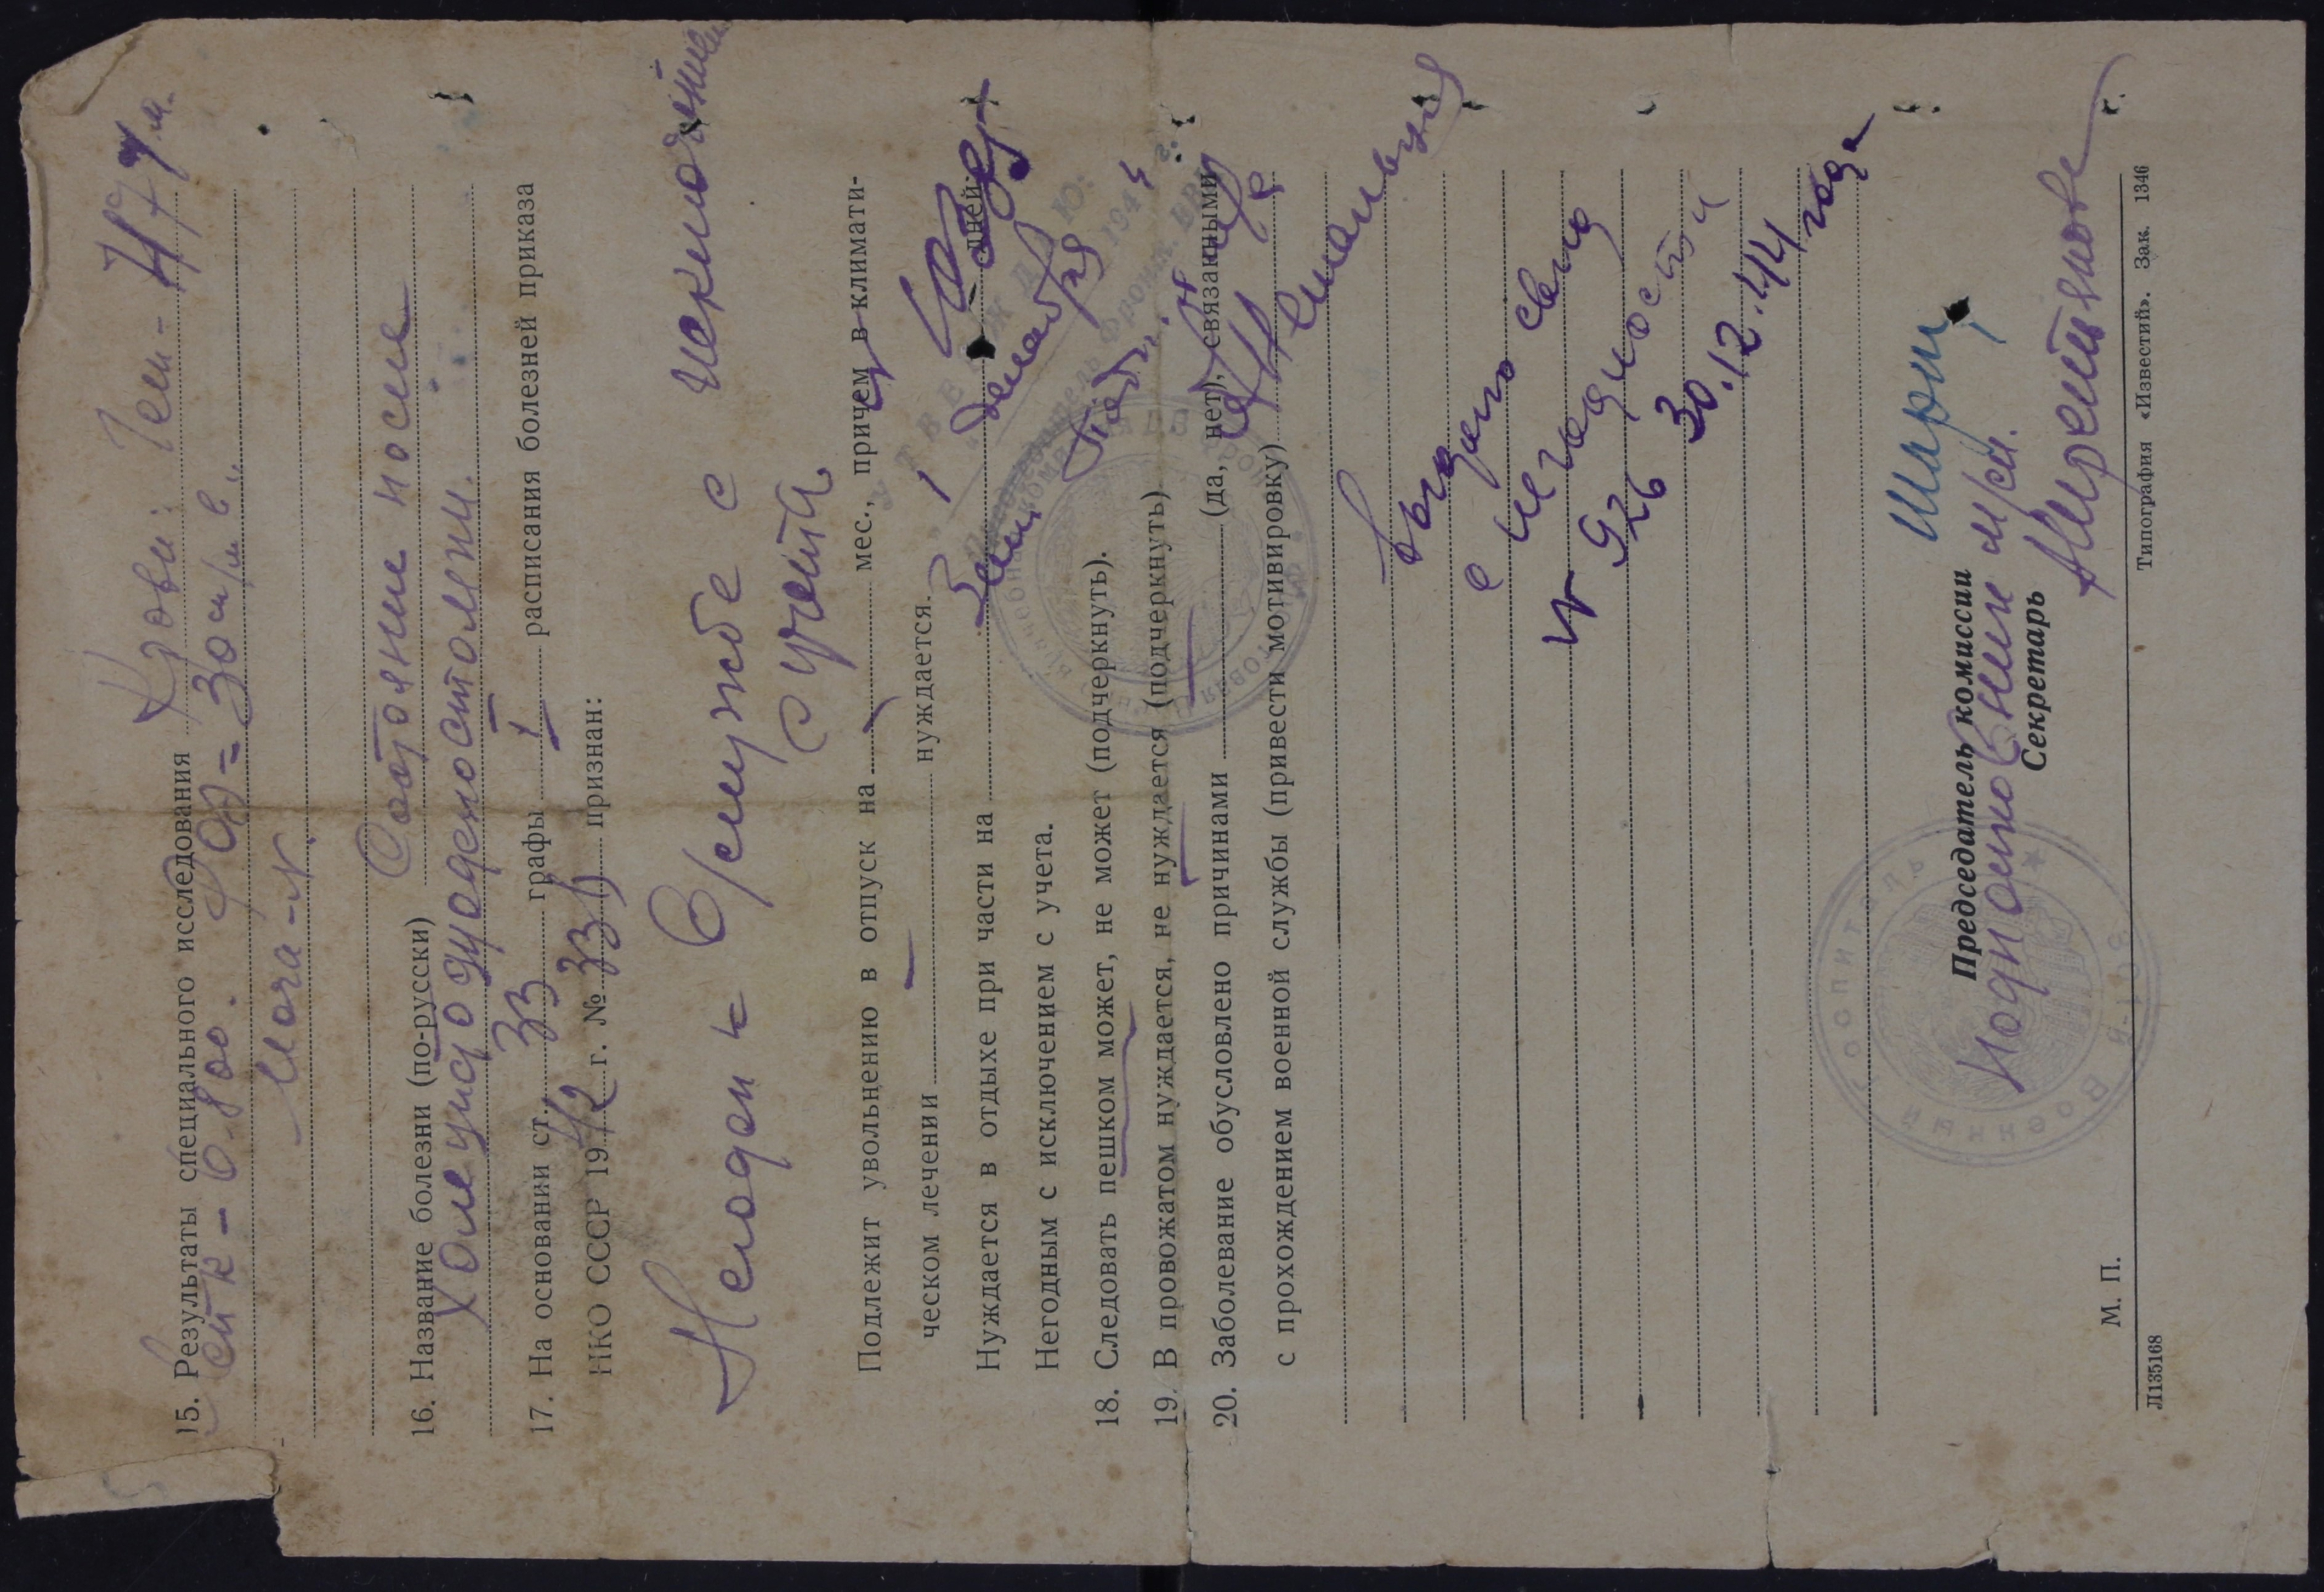 15. Результаты специального исследования Крови: Гем-
– 6.800. РОЭ = 30 м/м в „
Моча - N.
16. Название болезни (по-русски) Состояние после
Холецистодуоденостомии.
17. На основании ст. 33 графы I расписания болезней приказа
НКО СССР 1942 г. № 336 признан:
Негоден к в/службе с исключением
с учета
Подлежит увольнению в отпуск на мес., причем в климати-
ческом лечении нуждается.
Нуждается в отдыхе при части на дней.
Негодным с исключением с учета.
18. Следовать пешком может, не может (подчеркнуть).
19. В провожатом нуждается, не нуждается (подчеркнуть)
20. Заболевание обусловлено причинами (да, нет), связанными
с прохождением военной службы (привести мотивировку)
УТВЕРЖДАЮ:
декабря 1944 г.
Выдано св-во
о негодности
№ 926
30.12.44 года
Председатель комиссии
Подполковник м/сл.
Секретарь
М. П.
Военный госпиталь
Л135168 Типография «Известий». Зак. 1346